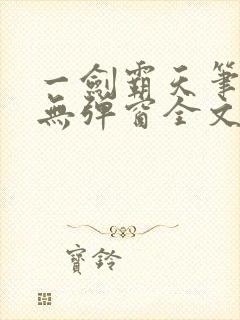 一劍霸天筆
無彈窗全文
寶鈴